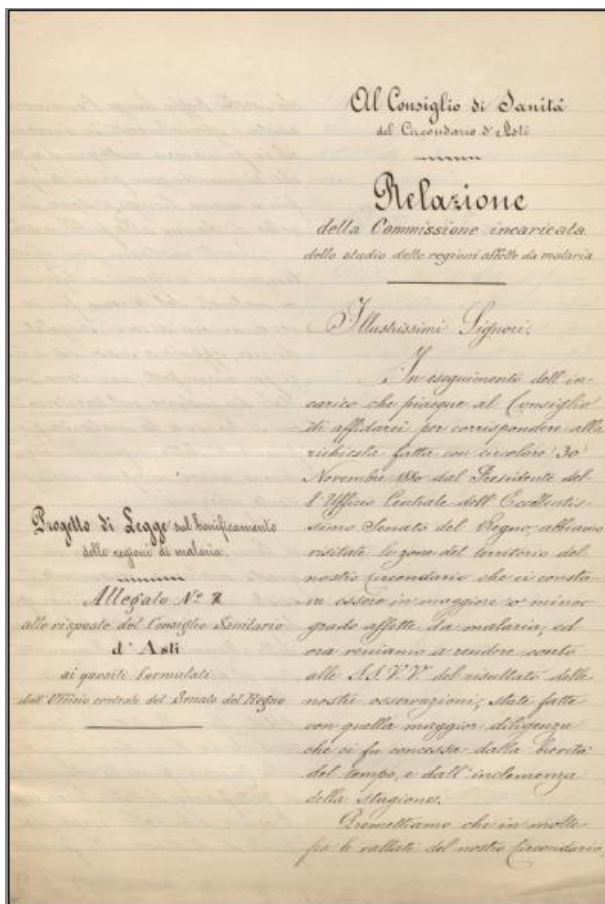 Al Consiglio di Sanità
del Circondario d'Asti
Relazione
della Commissione incaricata
dello studio delle regioni affette da malaria
Illustrissimi Signori.
In eseguimento dell'in-
carico che piacque al Consiglio
di affidarci per corrispondere alla
richiesta fatta con circolare 30
Novembre 1880 dal Presidente del-
l'Ufficio Centrale dell'Eccellentis-
simo Senato del Regno, abbiamo
visitate le zone del territorio del
nostro circondario che ci consta-
va essere in maggiore o minor
grado affette da malaria, ed
ora veniamo a rendere conto
alle S.S.V.V. del risultato delle
nostre osservazioni, state fatte
con quella maggior diligenza
che ci fu concessa dalla brevità
del tempo, e dall'inclemenza
della stagione.
Premettiamo che in molte
fra le vallate del nostro Circondario,
Progetto di Legge sul bonificamento
delle regioni di malaria.
Allegato Nº
alle risposte del Consiglio Sanitario
d'Asti
ai quesiti formulati
dall'Ufficio centrale del Senato del Regno